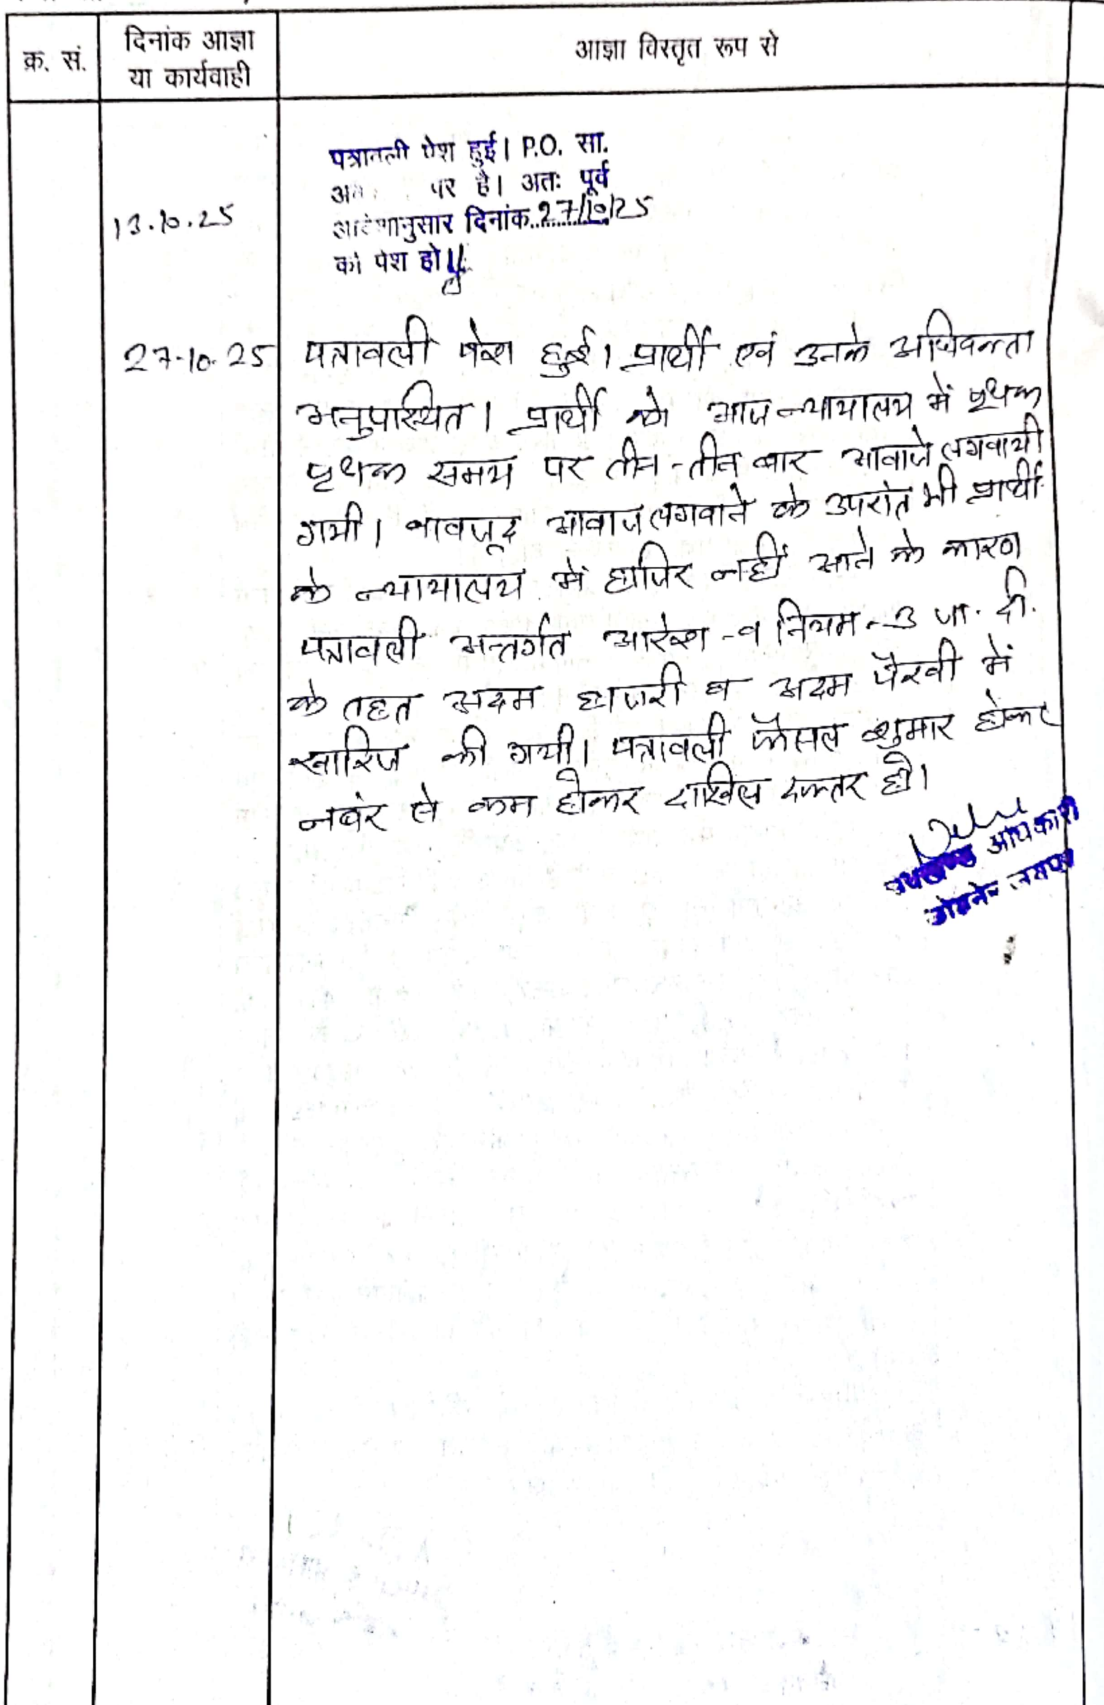 क्र. सं.
दिनांक आज्ञा
या कार्यवाही
आज्ञा विस्तृत रूप से
13.10.25
पत्रावली पेश हुई। P.O. सा.
पर है। अतः पूर्व
आदेशानुसार दिनांक..27/10/25
को पेश हो।
27-10-25
पत्रावली पेश हुई। प्रार्थी एवं उनके अधिवक्ता
अनुपस्थित। प्रार्थी को आज न्यायालय में पृथक
पृथक समय पर तीन-तीन बार आवाजे लगवायी
गयी। बावजूद आवाज लगवाने के उपरांत भी प्रार्थी
के न्यायालय में हाजिर नहीं आने के कारण
पत्रावली अन्तर्गत आदेश-9 नियम-3 जा. दी.
के तहत अदम हाजरी व अदम पैरवी में
खारिज की गयी। पत्रावली फैसल शुमार होकर
नबंर से कम होकर दाखिल दफ्तर हो।
उपखण्ड अधिकारी